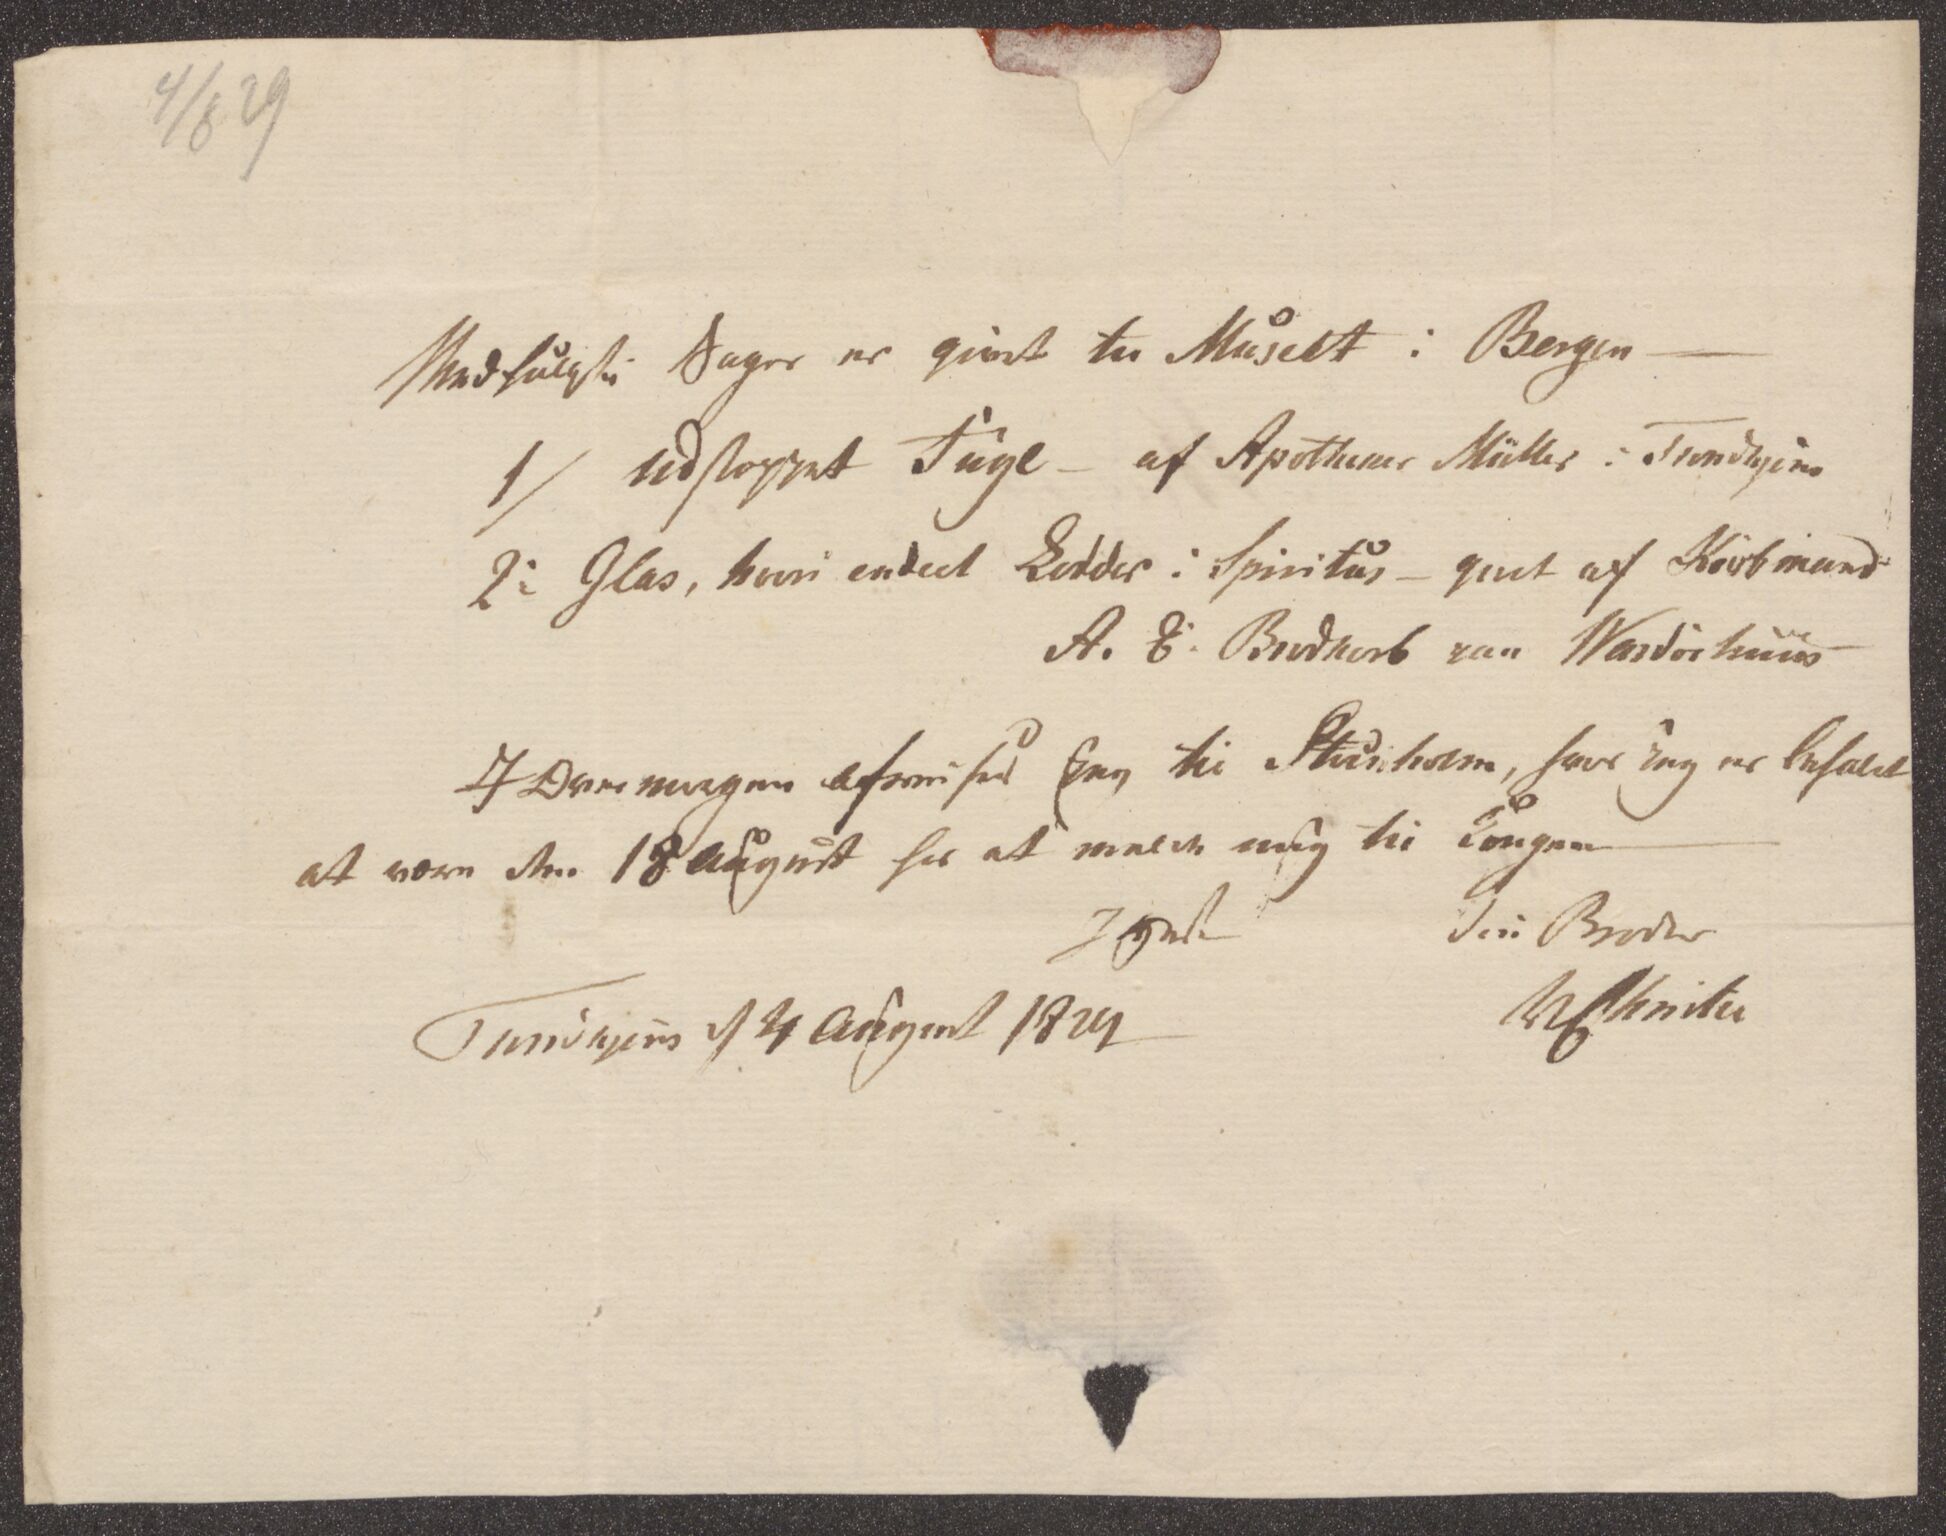 4/8 29
Medfulgte Sager er givet til Museet i Bergen —
1/ udstoppet Fugl – af Apotheker Müller i Trondhjem
2: Glas, hvori endeel Edder i Spiritus – givet af Kiøbmand
A. E. Brodkorb paa Wardöehuus
I Overmorgen afreiser Jeg til Stockholm, hvor Jeg er befalet
at være den 18 August for at melde mig til Kongen —
Din Broder
Trondhjem d 4 August 1829